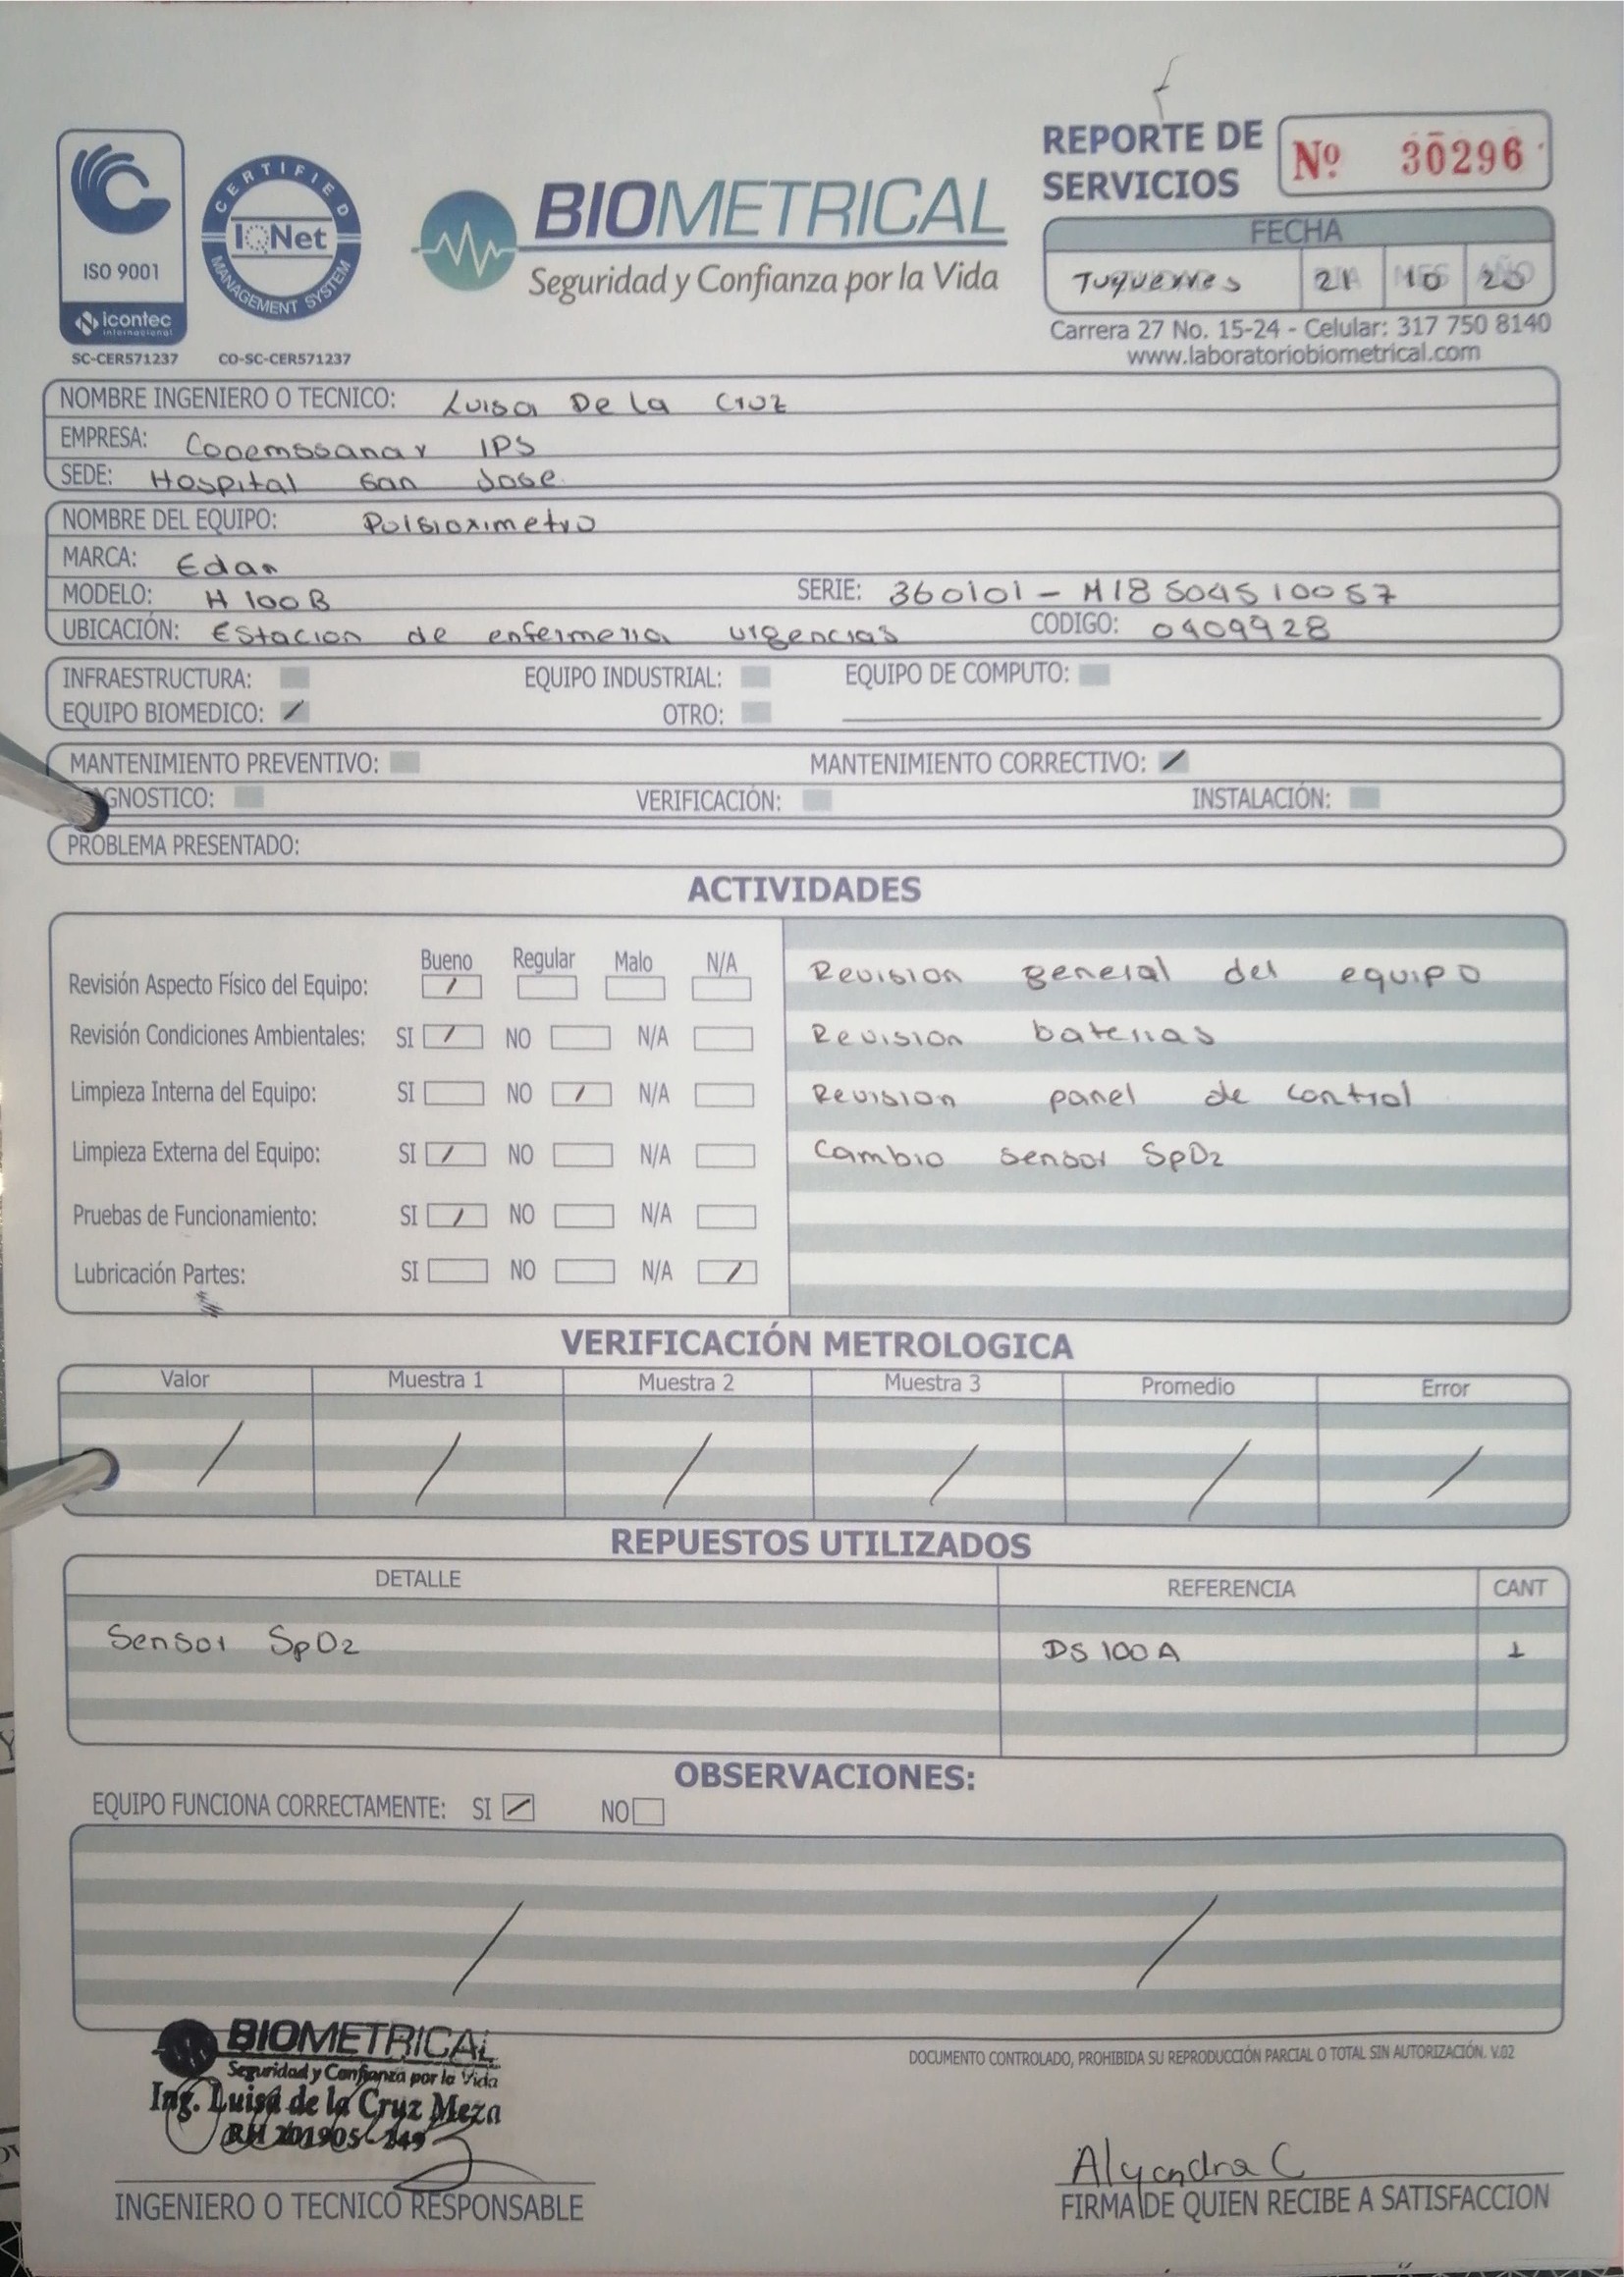 REPORTE DE SERVICIOS
Nº 30296
ISO 9001
icontec
internacional
SC-CER571237
CERTIFIED
IQNet
MANAGEMENT SYSTEM
CO-SC-CER571237
BIOMETRICAL
Seguridad y Confianza por la Vida
FECHA
Tuquerres 21 10 20
Carrera 27 No. 15-24 - Celular: 317 750 8140
www.laboratoriobiometrical.com
NOMBRE INGENIERO O TECNICO: Luisa De la Cruz
EMPRESA: Cooemssanar IPS
SEDE: Hospital San Jose
NOMBRE DEL EQUIPO: Pulsioximetro
MARCA: Edan
MODELO: H 100B SERIE: 360101 - M18504510057
UBICACIÓN: Estacion de enfermeria urgencias CODIGO: 0409928
INFRAESTRUCTURA: EQUIPO INDUSTRIAL: EQUIPO DE COMPUTO:
EQUIPO BIOMEDICO: / OTRO:
MANTENIMIENTO PREVENTIVO: MANTENIMIENTO CORRECTIVO: /
AGNOSTICO: VERIFICACIÓN: INSTALACIÓN:
PROBLEMA PRESENTADO:
ACTIVIDADES
Bueno Regular Malo N/A
Revisión Aspecto Físico del Equipo: /
Revisión Condiciones Ambientales: SI / NO N/A
Limpieza Interna del Equipo: SI NO / N/A
Limpieza Externa del Equipo: SI / NO N/A
Pruebas de Funcionamiento: SI / NO N/A
Lubricación Partes: SI NO N/A /
Revision general del equipo
Revision baterias
Revision panel de control
Cambio sensor SpO2
VERIFICACIÓN METROLOGICA
Valor Muestra 1 Muestra 2 Muestra 3 Promedio Error
/ / / / / /
REPUESTOS UTILIZADOS
DETALLE REFERENCIA CANT
Sensor SpO2 DS 100 A 1
OBSERVACIONES:
EQUIPO FUNCIONA CORRECTAMENTE: SI / NO
/ /
BIOMETRICAL
Seguridad y Confianza por la Vida
Ing. Luisa de la Cruz Meza
RH 201905-249
DOCUMENTO CONTROLADO, PROHIBIDA SU REPRODUCCIÓN PARCIAL O TOTAL SIN AUTORIZACIÓN. V.02
Alejandra C
INGENIERO O TECNICO RESPONSABLE
FIRMA DE QUIEN RECIBE A SATISFACCION